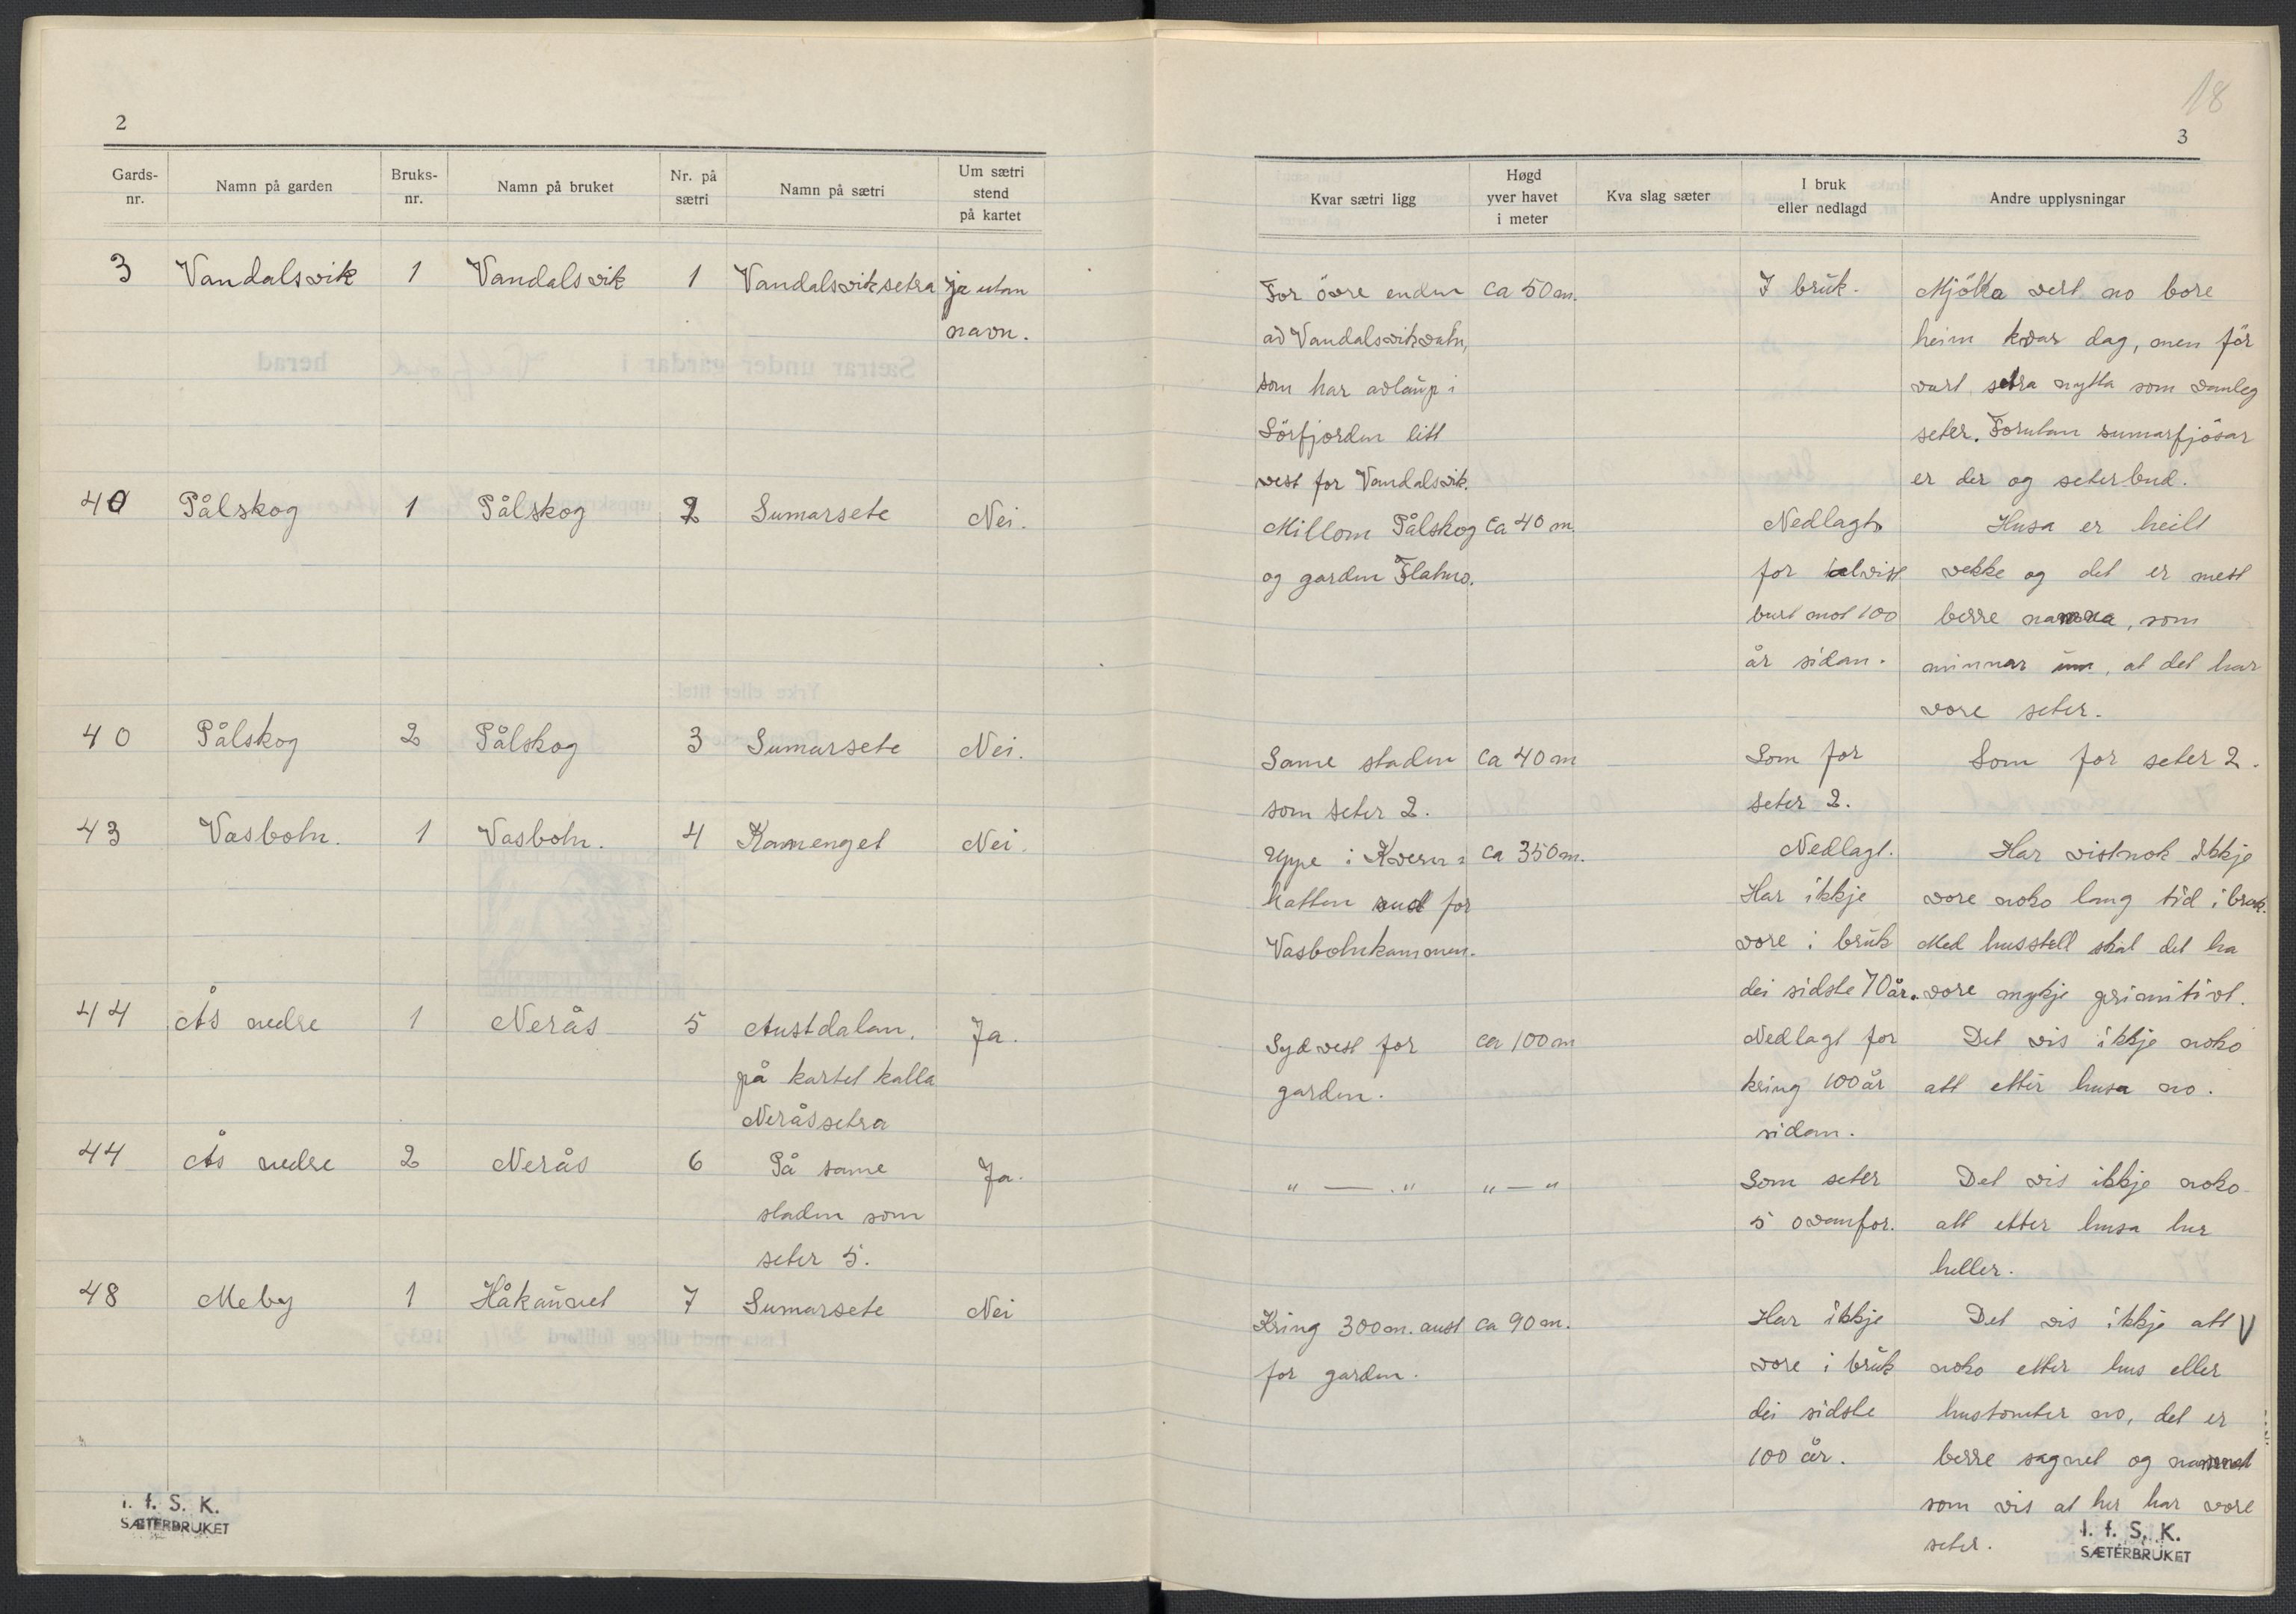 2
Gards-nr. Namn på garden Bruks-nr. Namn på bruket Nr. på sætri Namn på sætri Um sætri stend på kartet
3 Vandalsvik 1 Vandalsvik 1 Vandalsviksetra ja utan
navn.
40 Pålskog 1 Pålskog 2 Sumarsete Nei.
40 Pålskog 2 Pålskog 3 Sumarsete Nei.
43 Vasbotn. 1 Vasbotn. 4 Kamenget Nei.
44 Ås nedre 1 Nerås 5 Austdalan. Ja.
på kartet kalla
Neråssetra
44 Ås nedre 2 Nerås 6 På same Ja.
staden som
seter 5.
48 Meby 1 Håkaunet 7 Sumarsete Nei
I. f. S. K.
SÆTERBRUKET
18
3
Kvar sætri ligg Høgd yver havet i meter Kva slag sæter I bruk eller nedlagd Andre upplysningar
For övre enden ca 50 m. I bruk. Mjölka vert no bore
av Vandalsvikvatn, heim kvar dag, men för
som har avlaup i vart setra nytta som vanleg
Sörfjorden litt seter. Forutan sumarfjösar
vest for Vandalsvik. er der og seterbud.
Millom Pålskog ca 40 m. Nedlagt Husa er heilt
og garden Flatmo. for talvist vekke og det er mest
burt mot 100 berre namna, som
år sidan. minnar um, at det har
vore seter.
Same staden ca 40 m Som for Som for seter 2.
som seter 2. seter 2.
Uppe i Kvern= ca 350 m. Nedlagt. Har vistnok ikkje
hatten sud for Har ikkje vore noko lang tid i bruk.
Vasbotnkammen. vore i bruk Med husstell skal det ha
dei sidste 70 år. vore mykje primitivt.
Sydvest for ca 100 m Nedlagt for Det vis ikkje noko
garden. kring 100 år att etter husa no.
sidan.
" — " " — " Som seter Det vis ikkje noko
5 ovanfor. att etter husa her
heller.
Kring 300 m. aust ca 90 m. Har ikkje Det vis ikkje att V
for garden. vore i bruk noko etter hus eller
dei sidste hustomter no, det er
100 år. berre sagnet og namnet
som vis at her har vore
seter.
I. f. S. K.
SÆTERBRUKET